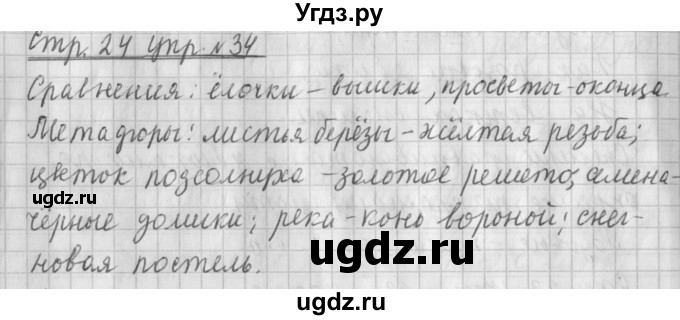 Угдз.ру
Стр. 24 упр. № 34
Сравнения: ёлочки – вышки, просветы - оконца.
Метафоры: листья берёзы – жёлтая резьба;
gdz.ru
цветок подсолнуха – золотое решето; семена –
чёрные домики; река - конь вороной; снег -
угдз.ру
новая постель.
угдз.ру